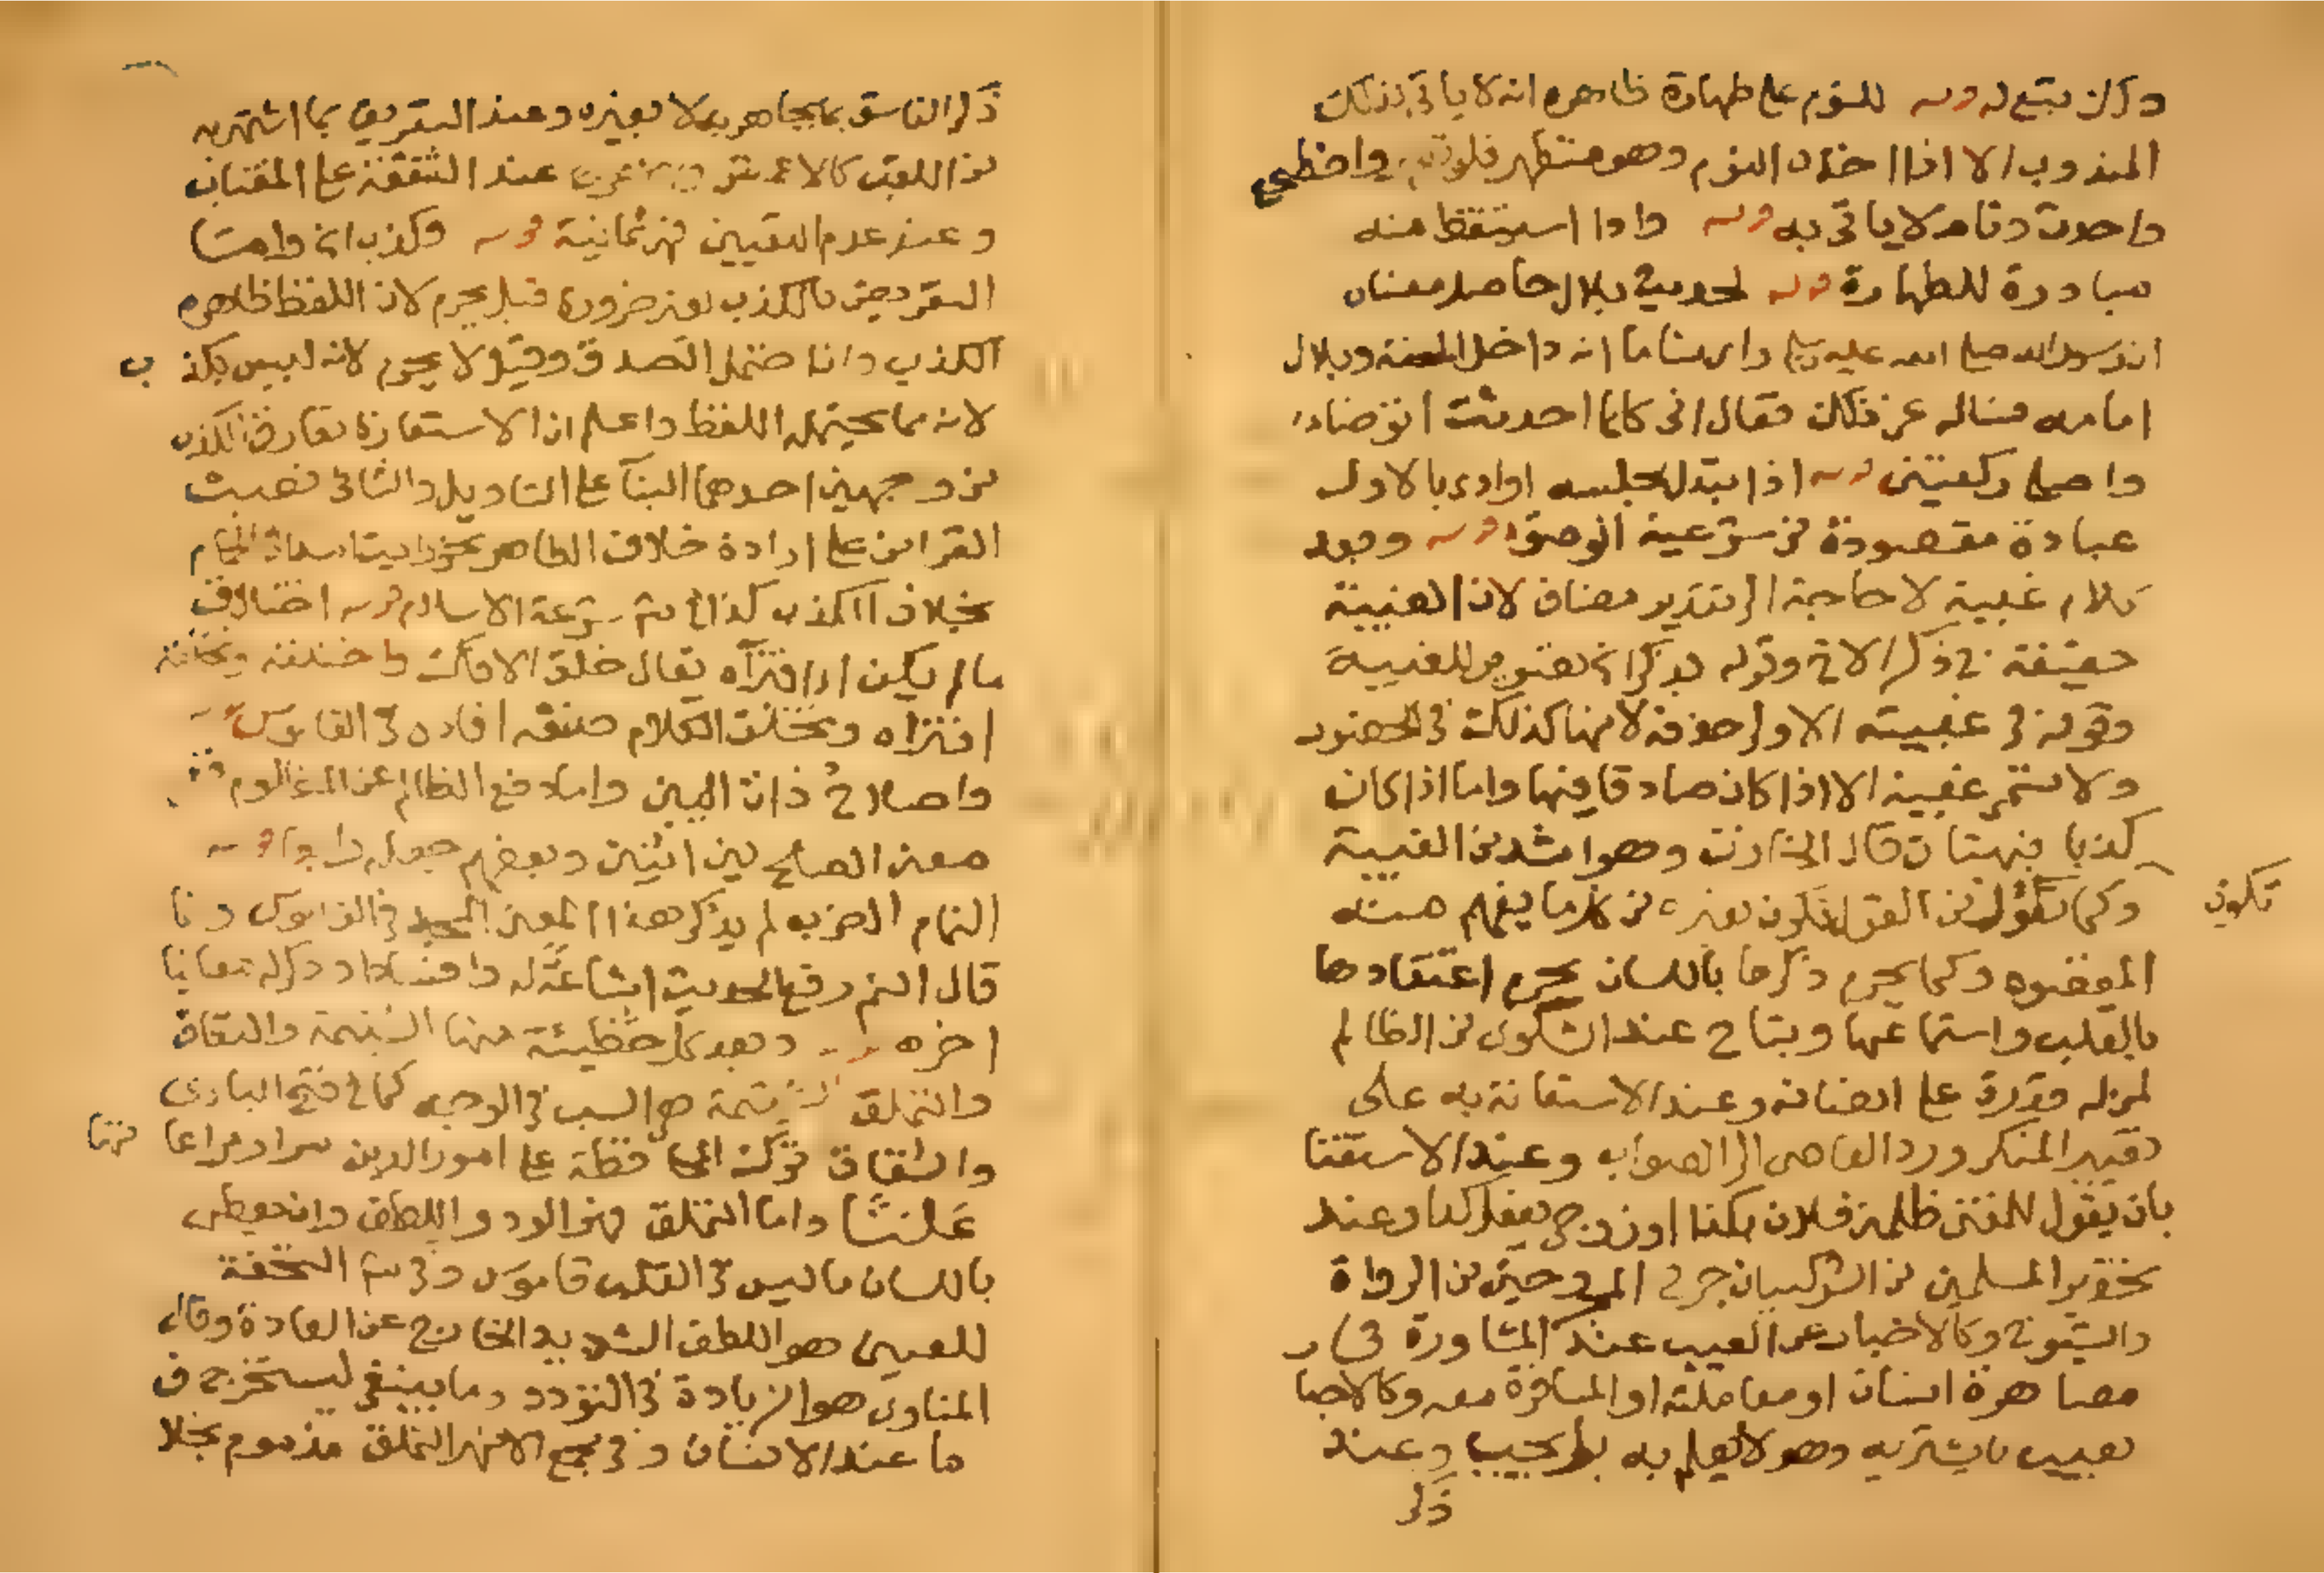 للنوم على طهارة ظاهره انه لا ياتي بذلك
المندوب الا اذا اخذه النوم وهو متطهر فلو واضطجع
واحدث ونام لا ياتي به قوله واذا استيقظ منه
مبادرة للطهارة قوله لحديث بلال حاصل معناه
ان رسول الله صلى الله عليه وسلم راى مناما انه داخل الجنة وبلال
امامه فساله عن ذلك فقال اني كلما احدثت اتوضاء
واصلي ركعتين قوله اذا تبدل مجلسه او ادى بالاول
عبادة مقصودة من شرعية الوضوء قوله وبعد
كلام غيبة لا حاجة الى تقدير مضاف لان الغيبة
حقيقة في ذكرك الاخ وقوله بذكرك تصوير للغيبة
وقوله في غيبته الاولى حذفه لانها كذلك في الحضور
ولا تسمى غيبة الا اذا كان صادقا فيها واما اذا كان
كذبا فبهتان قال وهو اشد من الغيبة
وكما تكون من القول تكون بغيره من كل ما يفهم منه
تكون
المقصود وكما يحرم ذكرها باللسان يحرم اعتقادها
بالقلب واستماعها وتباح عند الشكوى من الظالم
لمن له قدرة على انصافه وعند الاستعانة به على
تغيير المنكر ورد العاصي الى الصواب وعند الاستفتا
بان يقول للمفتي ظلمني فلان بكذا او زوجي يفعل كذا وعند
تحذير المسلمين من الشر كبيان جرح المجروحين من الرواة
والشهود وكالاخبار عن العيب عند المشاورة في
مصاهرة انسان او معاملته او المسافرة معه وكالاخبا
بعيب ما يشتريه وهو لا يعلم به بل يجب وعند
ذكر
ذكر الفاسق بما يجاهر به لا بغيره وعند التعريف بما اشتهر به
من اللقب كالاعمش عند الشفقة على المغتاب
وعند عدم التعيين فهي ثمانية قوله وكذب
التعريض بالكذب لغير ضرورة قيل يحرم لان اللفظ ظاهره
الكذب وان احتمل الصدق وقيل لا يحرم لانه ليس بكذ ب
لانه مما يحتمله اللفظ واعلم ان الاستعارة تفارق الكذب
من وجهين احدهما البنا على التاويل والثاني نصب
القراين على ارادة خلاف الظاهر نحو رايت اسدا في الحمام
بخلاف الكذب كذا في شرعة الاسلام قوله اختلاق
ما لم يكن اى افتراه يقال خلق الافك واختلقه وتخلقه
افتراه وتخلق الكلام صنعه افاده في القاموس
واصلاح ذات البين واما دفع الظالم عن المظلوم
معنى الصلح بين اثنين وبعضهم جعله
لم يذكر هذا المعنى في القاموس
قال النم رفع الحديث اشاعة له وافسادا وذكر له معانيا
اخره وبعد كل خطيئة منها الشتيمة والنفاق
والتملق الشتيمة هي السب في الوجه كما في فتح الباري
والنفاق تركه المحافظة على امور الدين سرا ومراعا تها
علنا واما التملق فهو الود واللطف وان يعطى
باللسان ما ليس في القلب قاموس وفي شر التحفة
للعيني هو اللطف الشديد الخارج عن العادة وقال
المناوي هو الزيادة في التودد وما ينبغي ليستخرج
ما عند الانسان وفي مجمع الانهر التملق مذموم بخلا